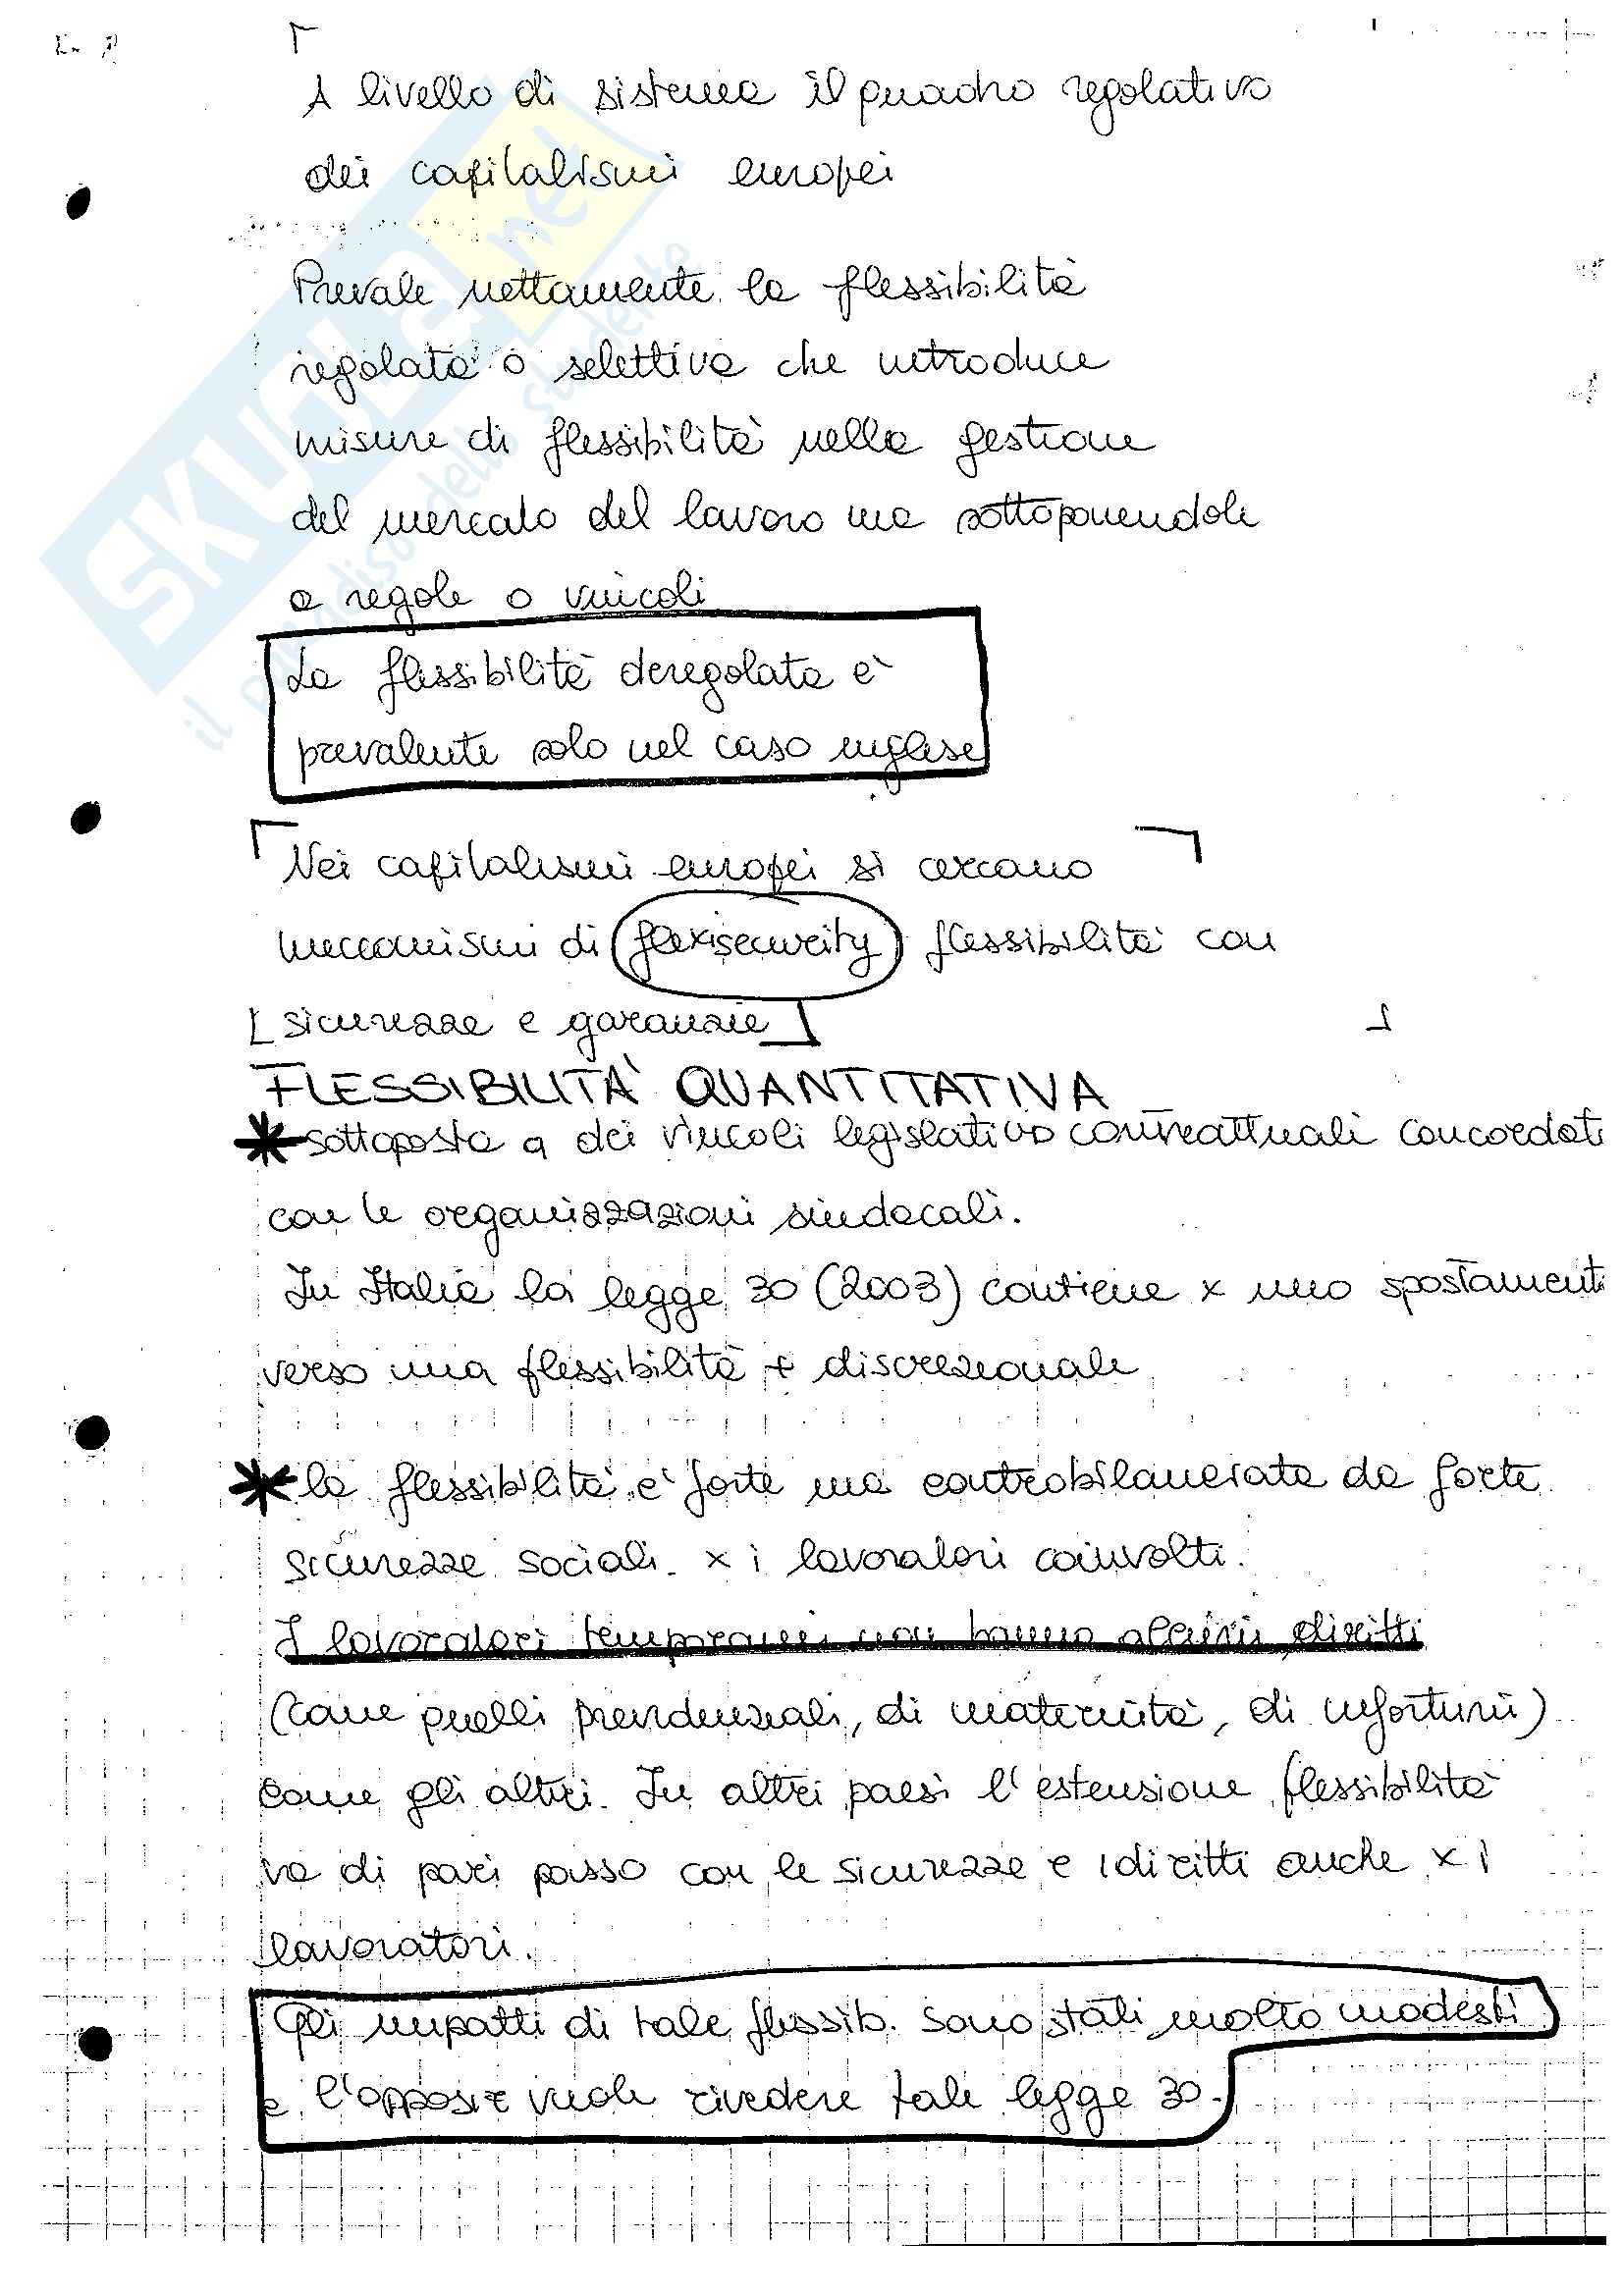 A livello di sistema il quadro regolativo
dei capitalismi europei
Prevale nettamente la flessibilità
regolata o selettiva che introduce
misure di flessibilità nella gestione
del mercato del lavoro ma sottoponendole
a regole o vincoli
La flessibilità deregolata è
prevalente solo nel caso inglese
Nei capitalismi europei si cercano
meccanismi di flexisecurity flessibilità con
sicurezze e garanzie
FLESSIBILITÀ QUANTITATIVA
* sottoposta a dei vincoli legislativo contrattuali concordati
con le organizzazioni sindacali.
In Italia la legge 30 (2003) contiene x uno spostamento
verso una flessibilità + discrezionale
* la flessibilità è forte ma controbilanciata da forte
sicurezze sociali x i lavoratori coinvolti.
I lavoratori temporanei non hanno alcuni diritti
(come quelli previdenziali, di maternità, di infortunii)
come gli altri. In altri paesi l'estensione flessibilità
va di pari passo con le sicurezze e i diritti anche x i
lavoratori.
Gli impatti di tale flessib. sono stati molto modesti
e l'opposiz vuole rivedere tale legge 30.
SKUOLA.net
il paradiso dello studente